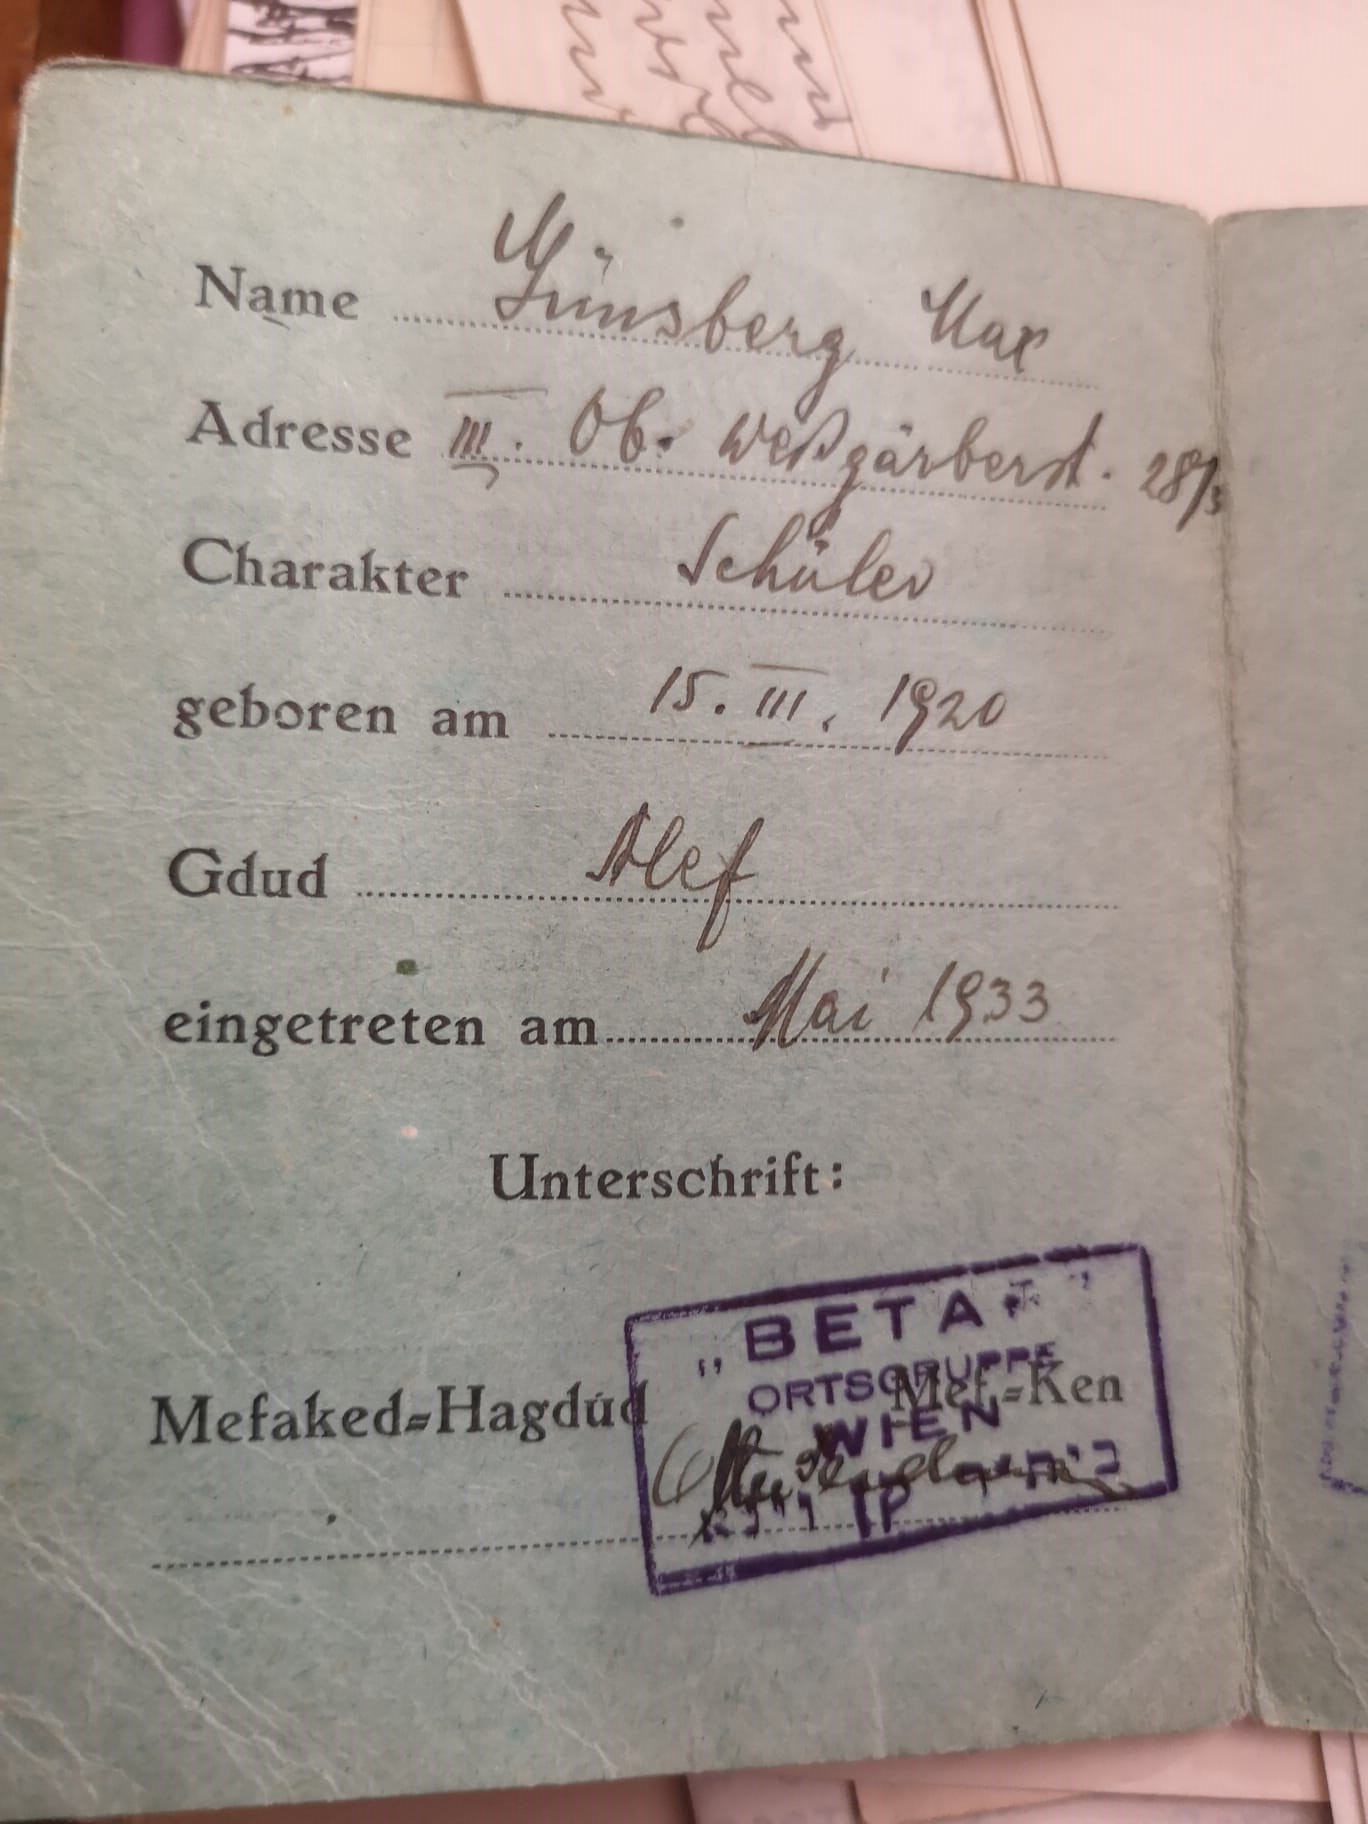 Name Günsberg Max
Adresse III. Ob. Weßgärberst. 28/3
Charakter Schüler
geboren am 15. III. 1920
Gdud Alef
eingetreten am Mai 1933
Unterschrift:
"BETAR"
ORTSGRUPPE
WIEN
Mefaked=Hagdud Mef.=Ken
קן וינא